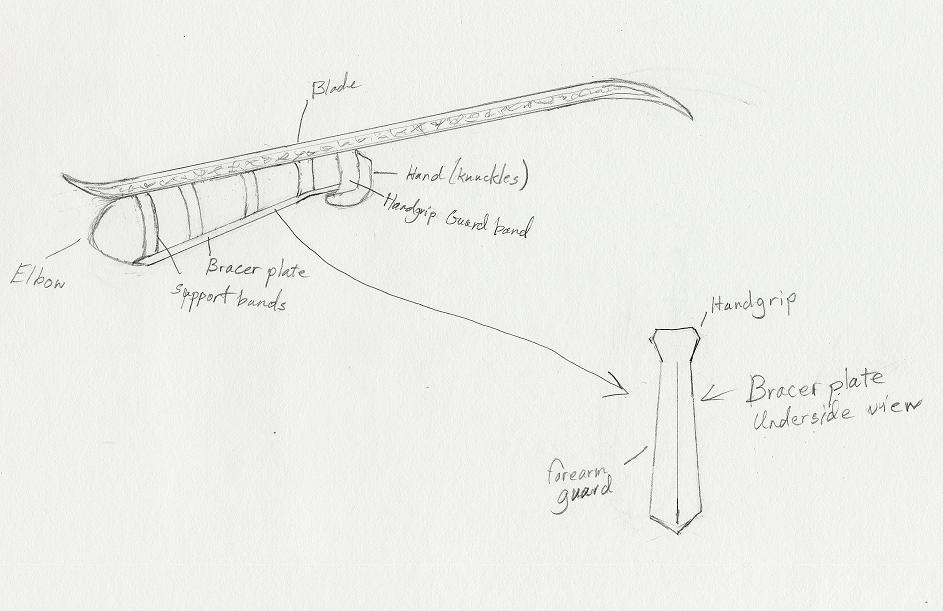 Blade
Hand (knuckles)
Handgrip Guard band
Elbow
Bracer plate
support bands
Handgrip
Bracer plate
Underside view
forearm
guard